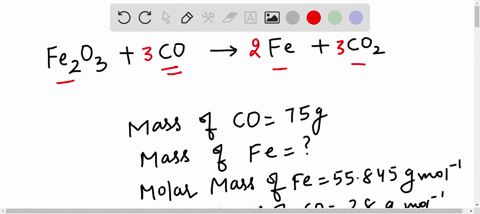 Fe₂O₃ + 3CO → 2Fe + 3CO₂
Mass of CO = 75g
Mass of Fe = ?
Molar Mass of Fe = 55.845 g mol⁻¹
of CO = 28 g mol⁻¹